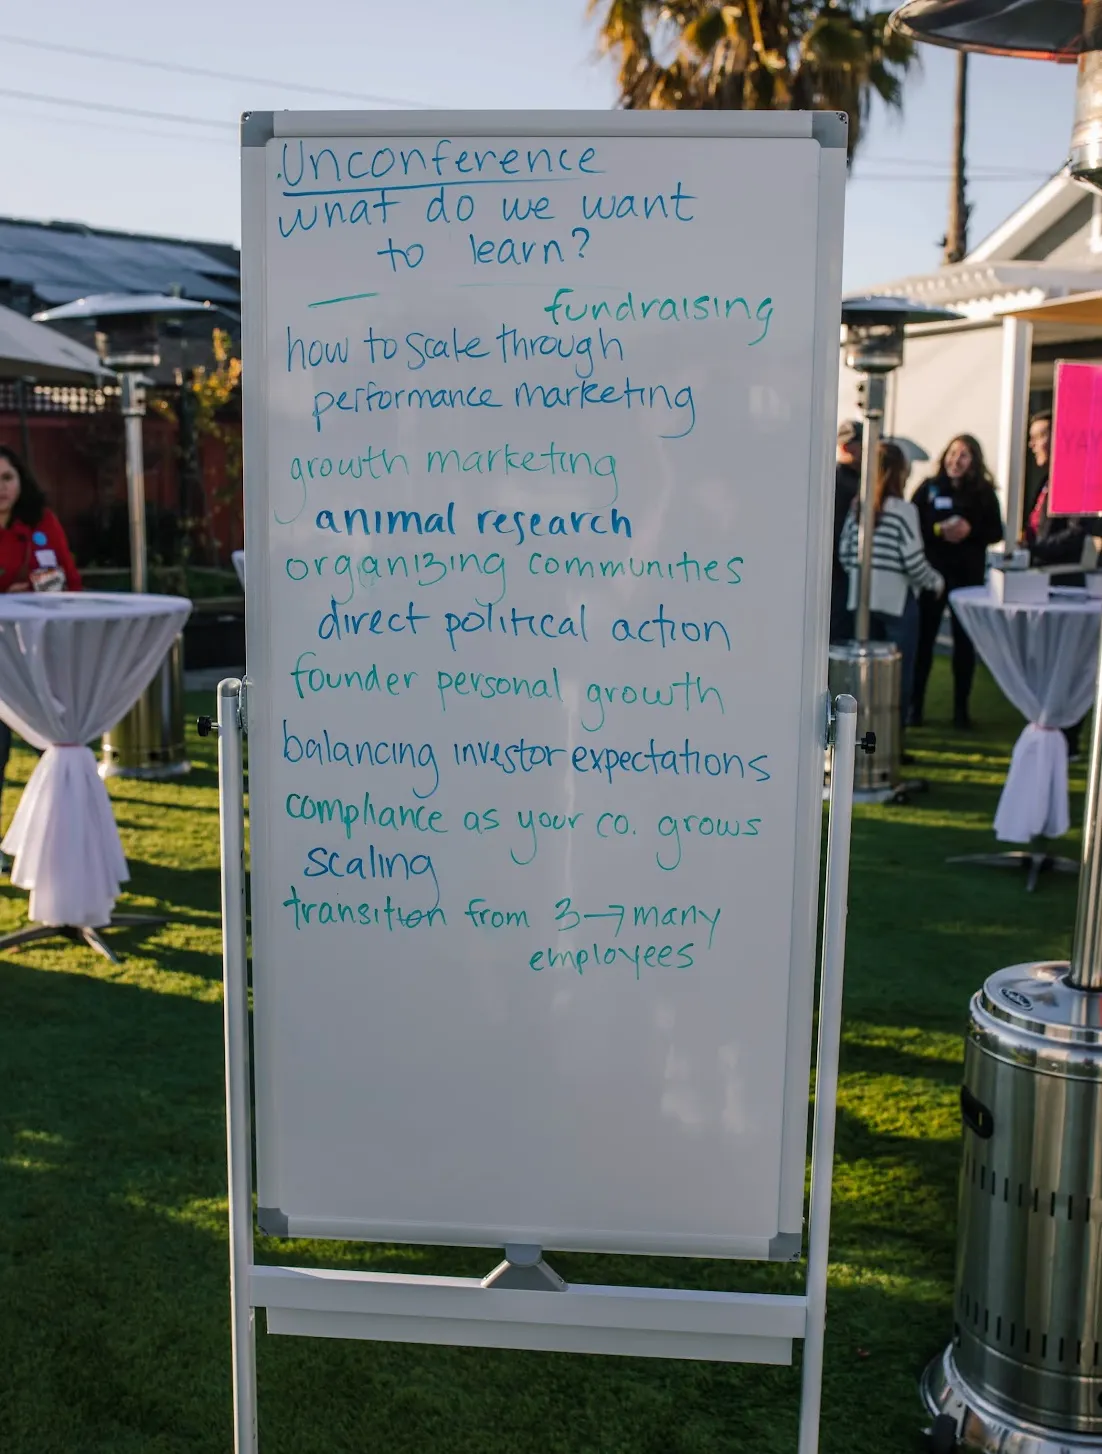 Unconference
what do we want
to learn?
fundraising
how to scale through
performance marketing
growth marketing
animal research
organizing communities
direct political action
founder personal growth
balancing investor expectations
compliance as your co. grows
scaling
transition from 3→many
employees